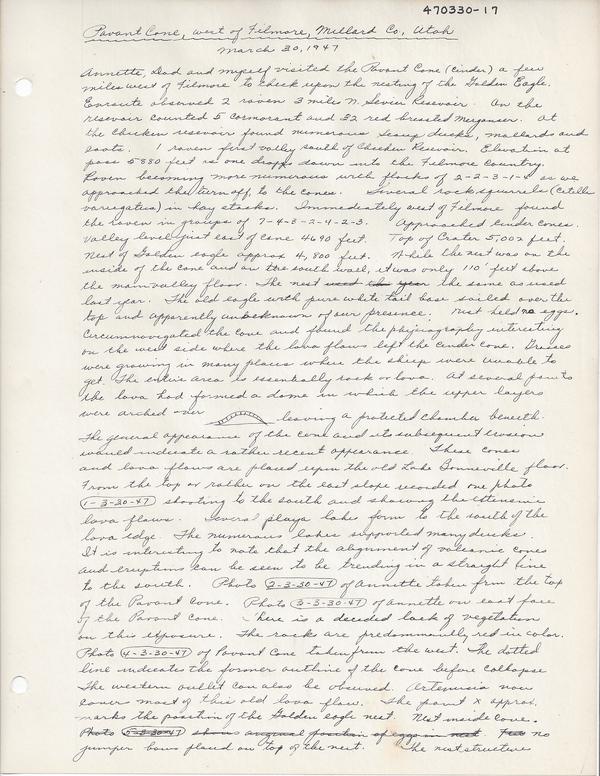 470330-17
Pavant Cone, west of Filmore, Millard Co, Utah
March 30, 1947
Annette, Dad and myself visited the Pavant Cone (Cinder) a few
miles west of Filmore to check upon the nesting of the Golden Eagle.
Enroute observed 2 raven 3 miles N. Sevier Resevoir. On the
resevoir counted 5 cormorant and 32 red breasted Merganser. At
the Chicken resevoir found numerous ducks, mallards and
coots. 1 raven first valley south of Chicken Resevoir. Elevation at
pass 5880 feet as one drops down into the Filmore Country.
Raven becoming more numerous with flocks of 2-2-3-1-4 as we
approached the turn off, to the cones. Several rock squirrels (Citellus
variegatus) in hay stacks. Immediately west of Filmore found
the raven in groups of 7-4-3-2-4-2-3. Approached Cinder cones.
Valley level just east of cone 4690 feet. Top of Crater 5,002 feet.
Nest of Golden eagle approx 4,800 feet. While the nest was on the
inside of the cone and on the south wall, it was only 110' feet above
the main valley floor. The nest used this year the same as used
last year. The old eagle with pure white tail base sailed over the
top and apparently unbeknown of our presence. nest held no eggs.
Circumnavigated the cone and found the physiography interesting
on the west side where the lava flows left the Cinder Cone. Grasses
were growing in many places where the sheep were unable to
get. The entire area is essentially rock or lava. At several points
the lava had formed a dome in which the upper layers
were arched over leaving a protected chamber beneath.
The general appearance of the cone and its subsequent erosion
would indicate a rather recent appearance. These cones
and lava flows are placed upon the old Lake Bonneville floor.
From the top or rather on the east slope recorded one photo
1-3-30-47 shooting to the south and showing the extensive
lava flows. Several playa lakes form to the south of the
lava edge. The numerous lakes supported many ducks.
It is interesting to note that the alignment of volcanic cones
and eruptions can be seen to be trending in a straight line
to the south. Photo 2-3-30-47 of Annette taken from the top
of the Pavant Cone. Photo 3-3-30-47 of Annette on east face
of the Pavant Cone. There is a decided lack of vegetation
on this exposure. The rocks are predominantly red in color.
Photo 4-3-30-47 of Pavant Cone taken from the west. The dotted
line indicates the former outline of the cone before collapse
The western outlet can also be observed. Artemisia now
covers most of this old lava flow. The point x approx.
marks the position of the Golden eagle nest. Nest inside cone.
Photo 5-3-30-47 shows original position of eggs in nest no
juniper bows placed on top of the nest. The nest structure